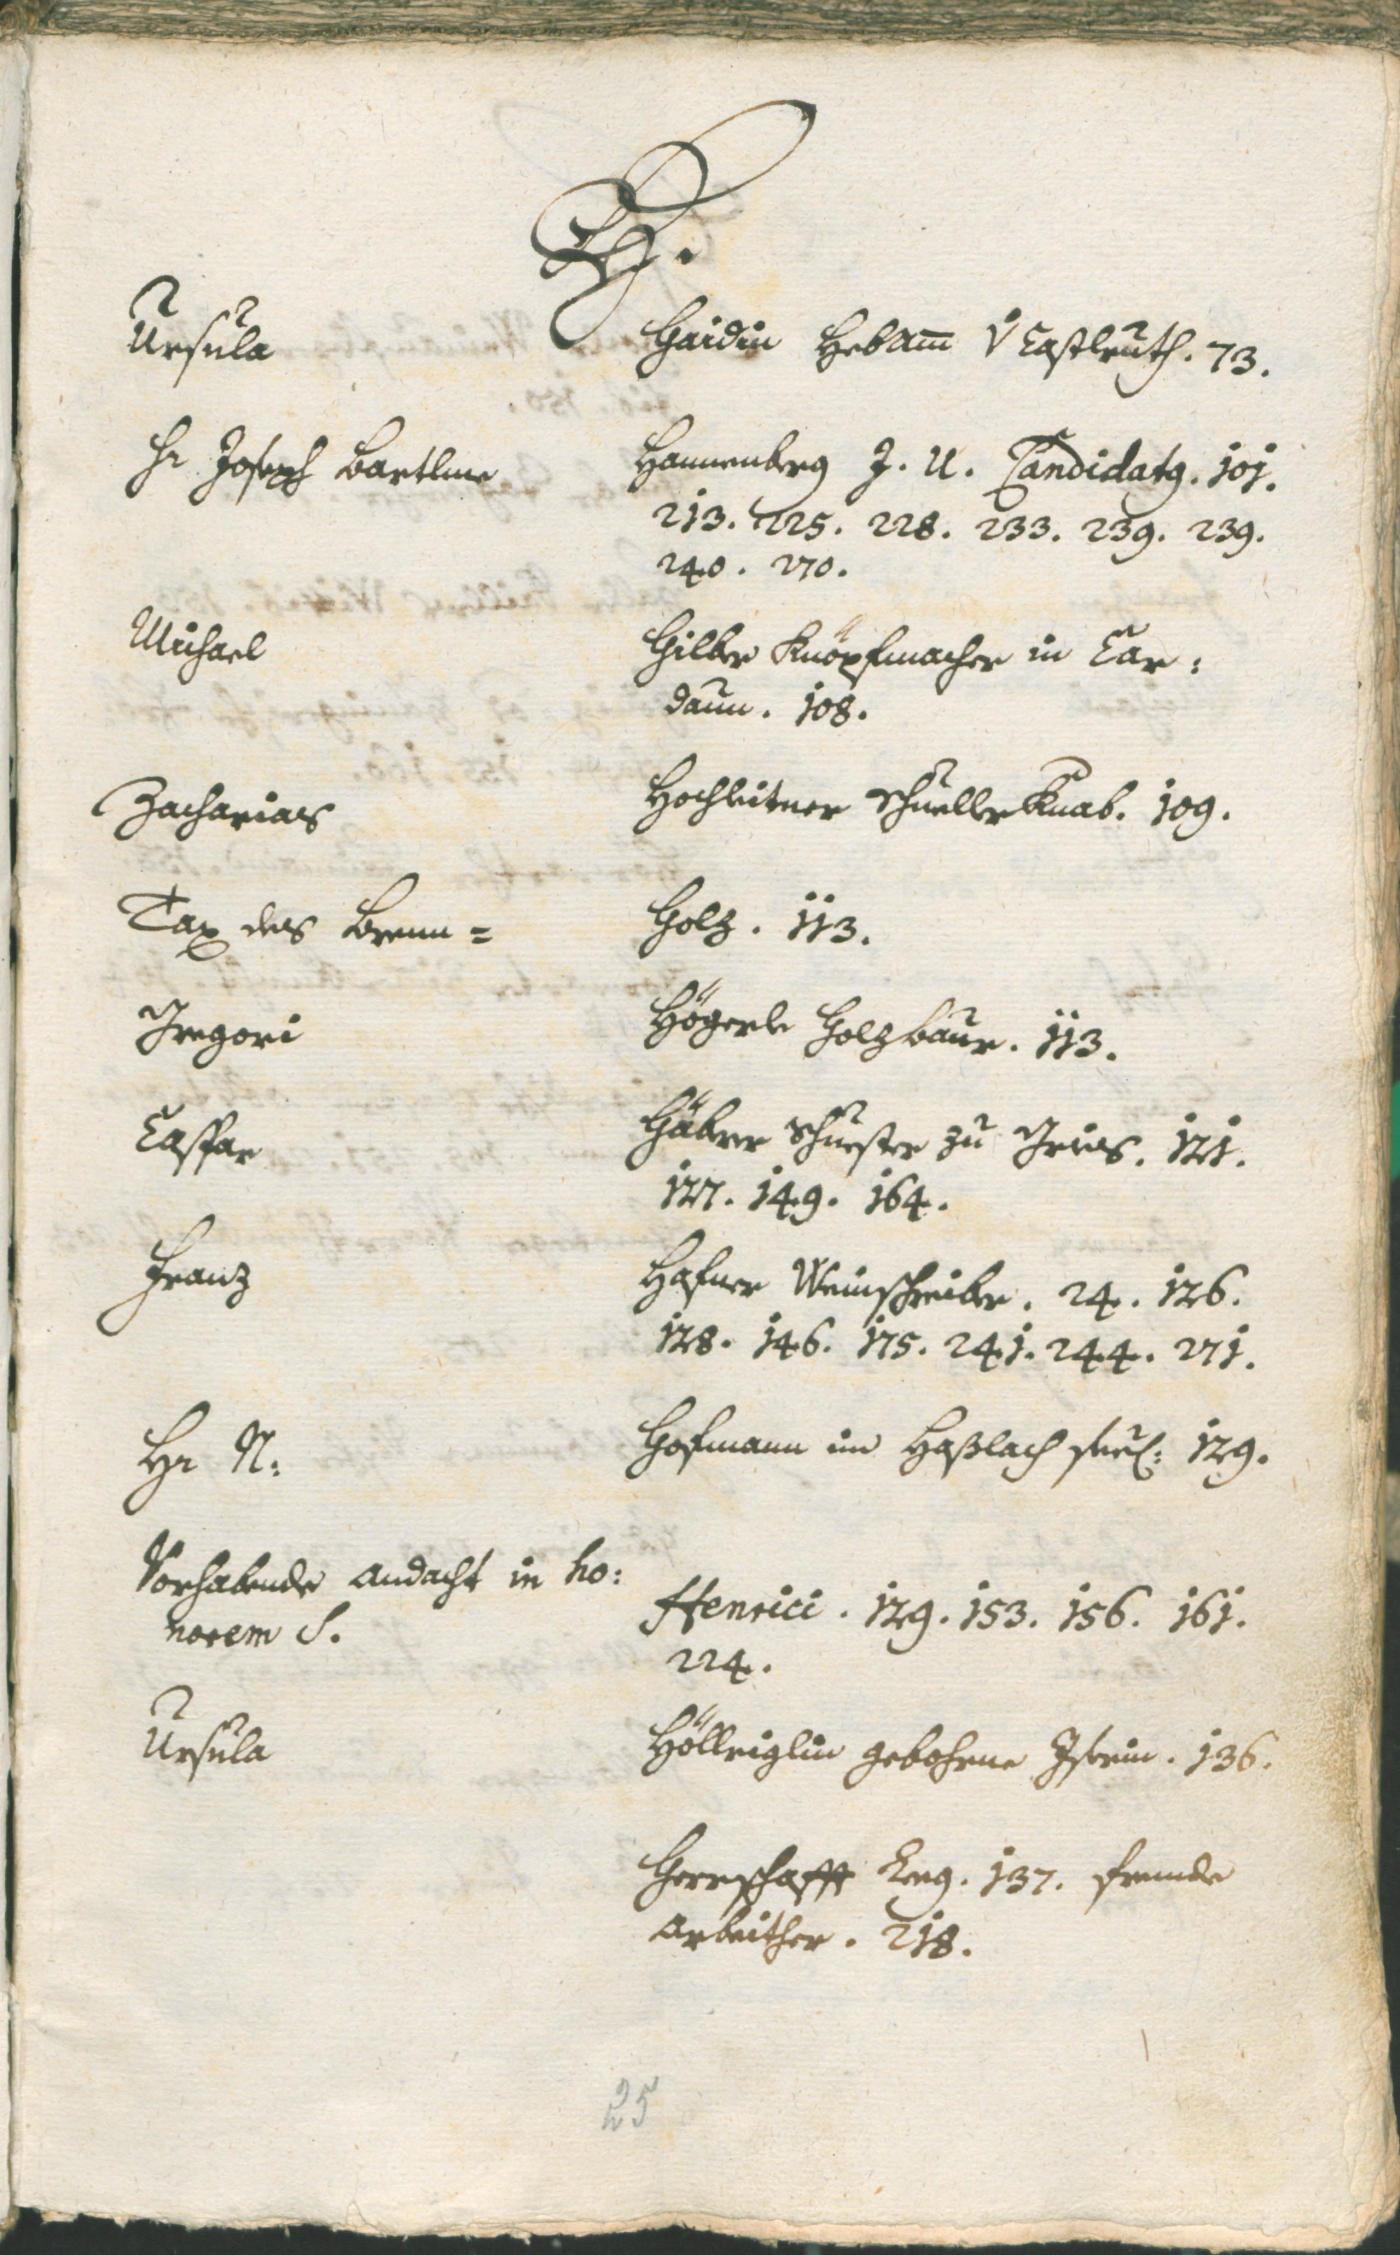 H.
Ursula Haidin Hebam̄ v Castlruth. 73.
Hr Joseph Bartlme Hannenberg J. U. Candidatg. 101.
213. 225. 228. 233. 239. 239.
240. 270.
Michael Hilber Knöpfmacher in Car:
daun. 108.
Zacharias Hochleitner Schueller Knab. 109.
Tax des Brenn= Holz. 113.
Gregori Högerle Holzbaur. 113.
Caspar Häberer Schuester zu Gries. 121.
127. 149. 164.
Franz Hafner Weinschreiber. 24. 126.
128. 146. 175. 241. 244. 271.
Hr N: Hofmann im Haßlach 129.
Vorhabende Andacht in ho:
norem S. Henrici. 129. 153. 156. 161.
224.
Ursula Hölleiglin gebohrne Iserin. 136.
Herrschafft 137. fremde
Arbeither. 218.
25